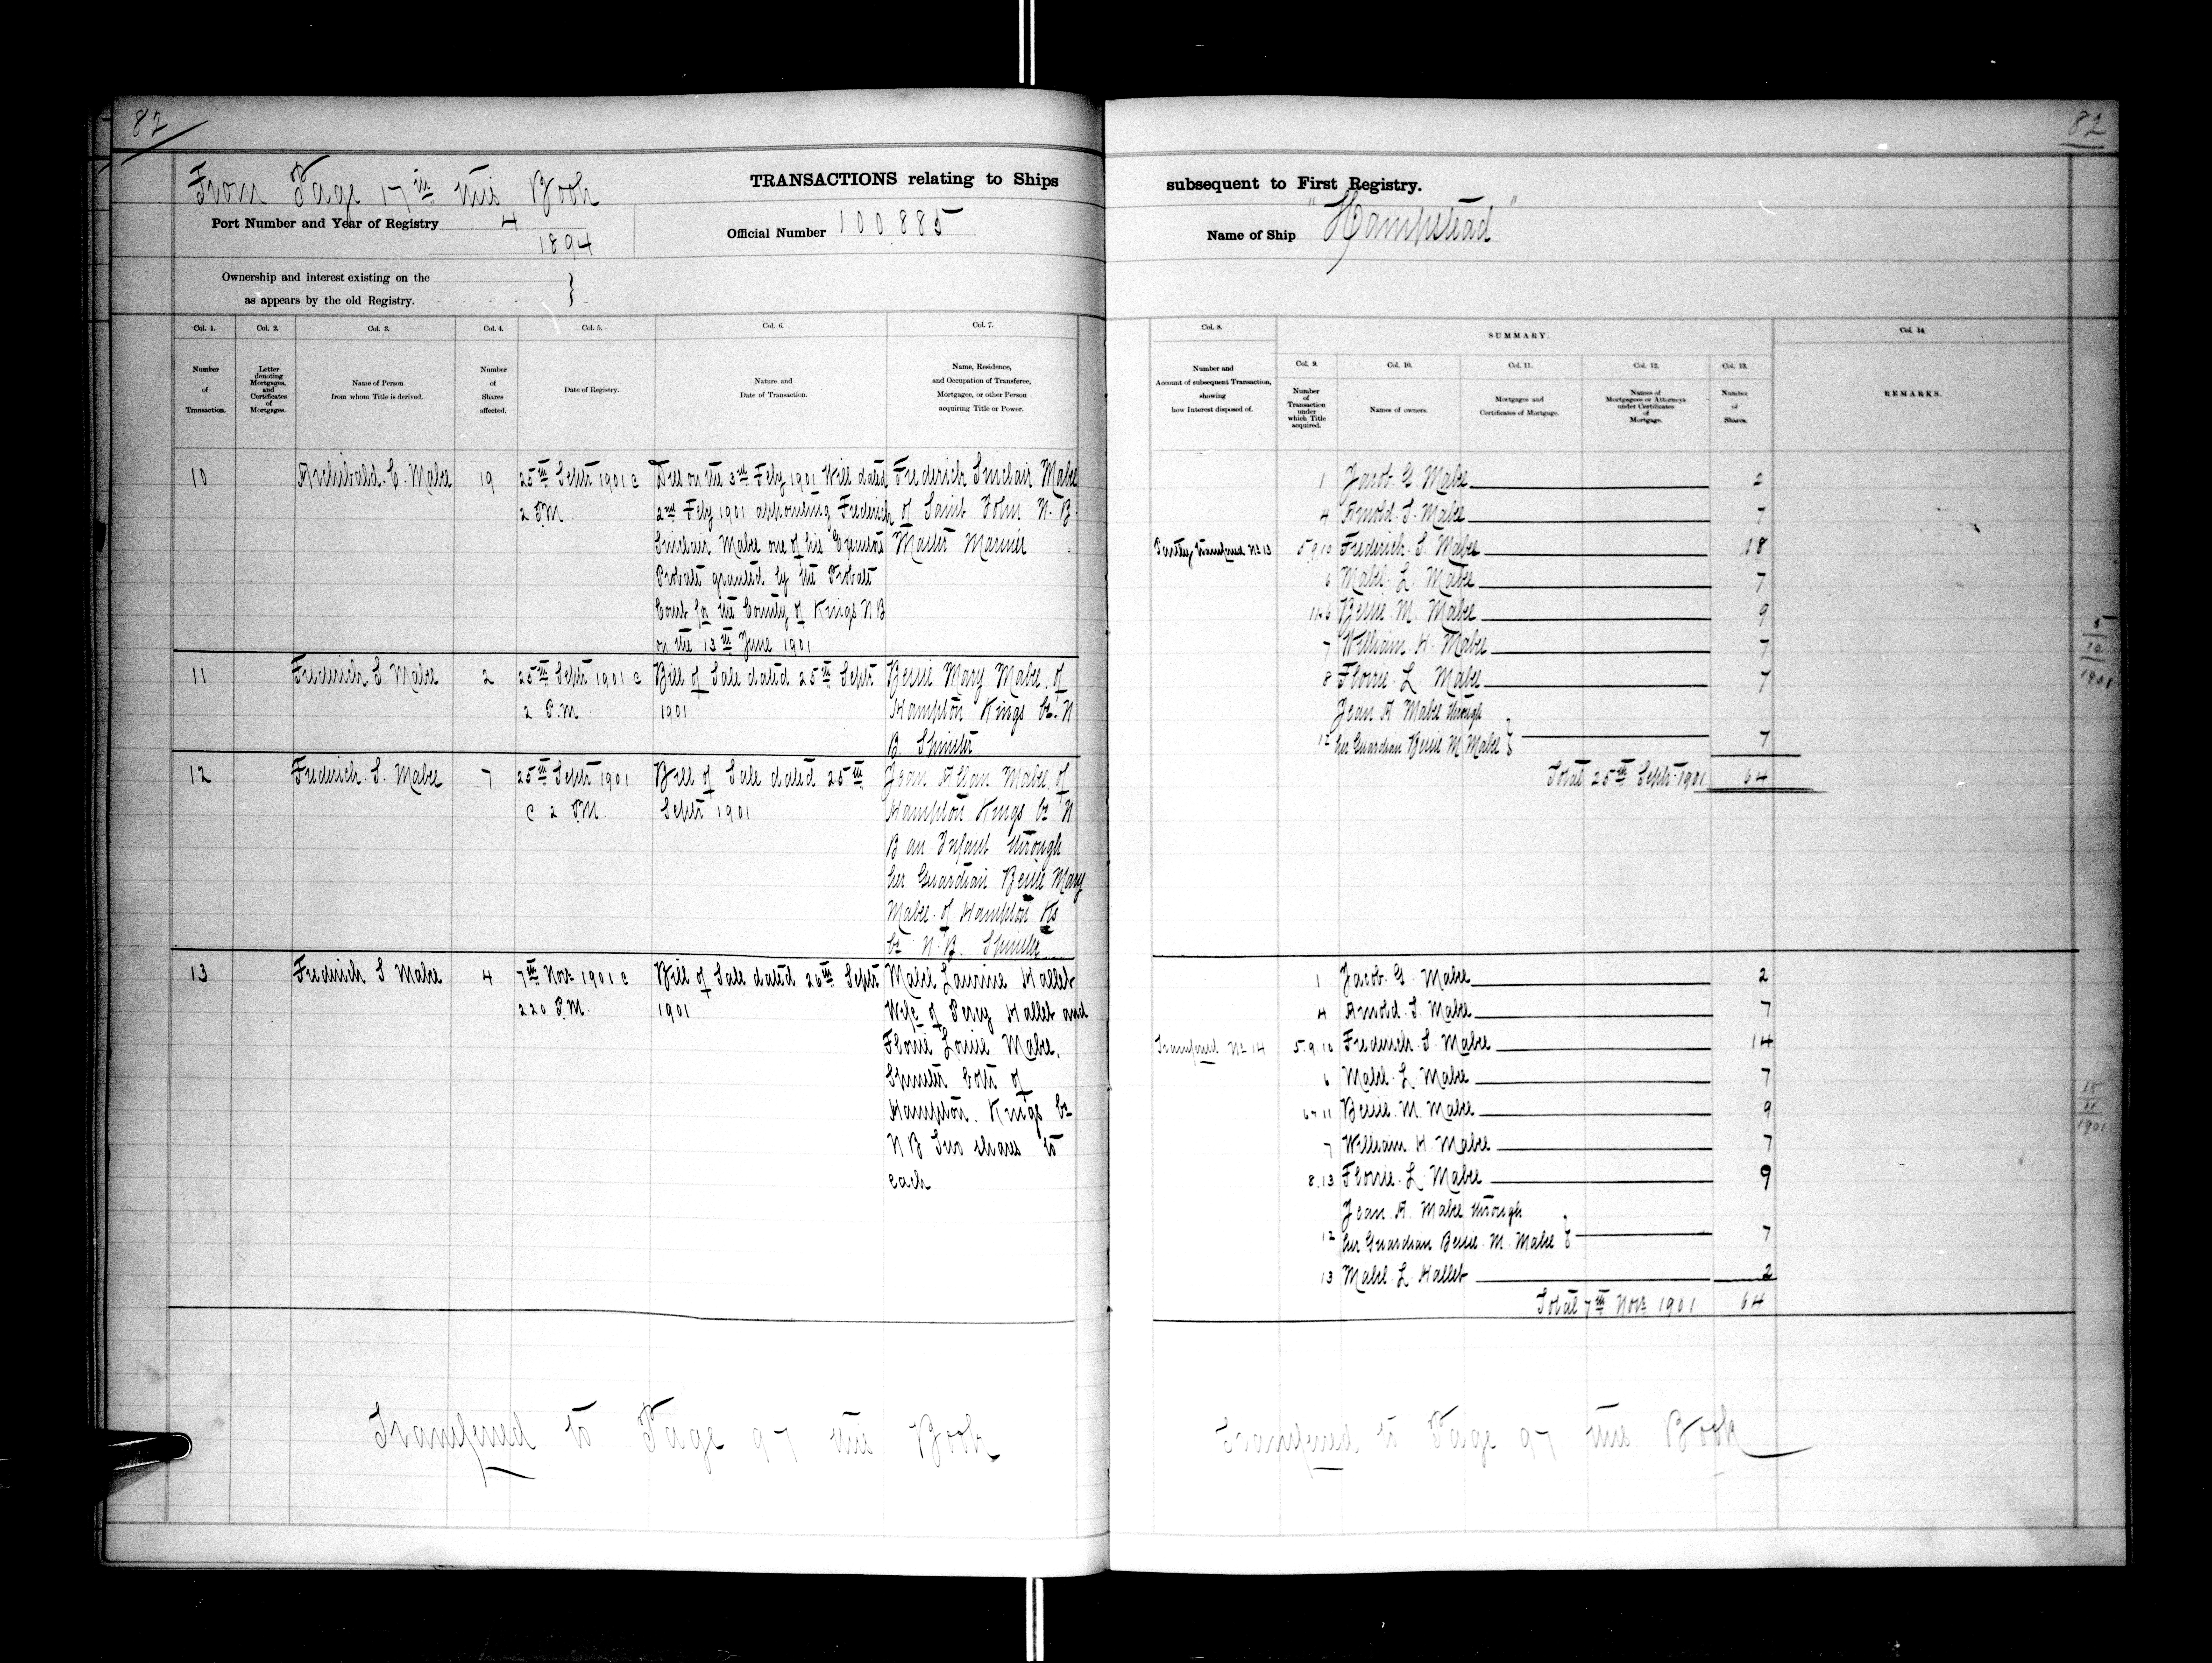 82
From Page 17 in this Book
TRANSACTIONS relating to Ships
Port Number and Year of Registry 4
1894
Official Number 100885
Ownership and interest existing on the
as appears by the old Registry.
Col. 1.
Col. 2.
Col. 3.
Col. 4.
Col. 5.
Col. 6.
Col. 7.
Number of Transaction.
Letter denoting Mortgages, and Certificates of Mortgages.
Name of Person from whom Title is derived.
Number of Shares affected.
Date of Registry.
Nature and Date of Transaction.
Name, Residence, and Occupation of Transferee, Mortgagee, or other Person acquiring Title or Power.
10 Archibald. C. Mabee 19
25th Septr 1901 @
2 P.M.
Died on the 3rd Feby 1901 Will dated
2nd Feby 1901 appointing Frederick
Sinclair Mabee one of his Executors
Probate granted by the Probate
Court for the County of Kings N B
on the 13th June 1901
Frederick Sinclair Mabee
of Saint John N. B.
Master Mariner
11 Frederick S Mabee 2
25th Septr 1901 @
2 P.M
Bill of Sale dated 25th Septr
1901
Bessie Mary Mabee, of
Hampton Kings Co. N
B. Spinster
12 Frederick. S. Mabee 7
25th Septr 1901
@ 2 P.M.
Bill of Sale dated 25th
Septr 1901
Jean Allan Mabee, of
Hampton Kings Co N
B an Infant through
her Guardian Bessie Mary
Mabee of Hampton Ks
Co N.B. Spinster
13 Frederick S Mabee 4
7th Novr 1901 @
220 P.M.
Bill of Sale dated 26th Septr
1901
Mabel Laurine Hallet
Wife of Percy Hallet and
Florrie Louise Mabee,
Spinster both of
Hampton. Kings Co
N B Two shares to
each
Transferred to Page 97 this Book
82
subsequent to First Registry.
Name of Ship "Hampstead"
Col. 8.
SUMMARY.
Col. 14.
Col. 9.
Col. 10.
Col. 11.
Col. 12.
Col. 13.
Number and Account of subsequent Transaction, showing how Interest disposed of.
Number of Transaction under which Title acquired.
Names of owners.
Mortgages and Certificates of Mortgage.
Names of Mortgagees or Attorneys under Certificates of Mortgage.
Number of Shares.
REMARKS.
1 Jacob. G. Mabee 2
4 Arnold. S. Mabee 7
Partly transferred No 13 5.9.10 Frederick. S. Mabee 18
6 Mabel. L. Mabee 7
11.6 Bessie. M. Mabee 9
7 William. H. Mabee 7
8 Florrie. L. Mabee 7
Jean A Mabee through
12 her Guardian Bessie M Mabee 7
Total 25th Septr 1901 64
5
10
1901
1 Jacob. G. Mabee 2
4 Arnold. S. Mabee 7
Transferred No 14 5.9.10 Frederick. S. Mabee 14
6 Mabel. L. Mabee 7
6 & 11 Bessie. M. Mabee 9
7 William. H. Mabee 7
8.13 Florrie. L. Mabee 9
Jean. A. Mabee through
12 her Guardian Bessie. M. Mabee 7
13 Mabel. L. Hallet 2
Total 7th Novr 1901 64
15
11
1901
Transferred to Page 97 this Book